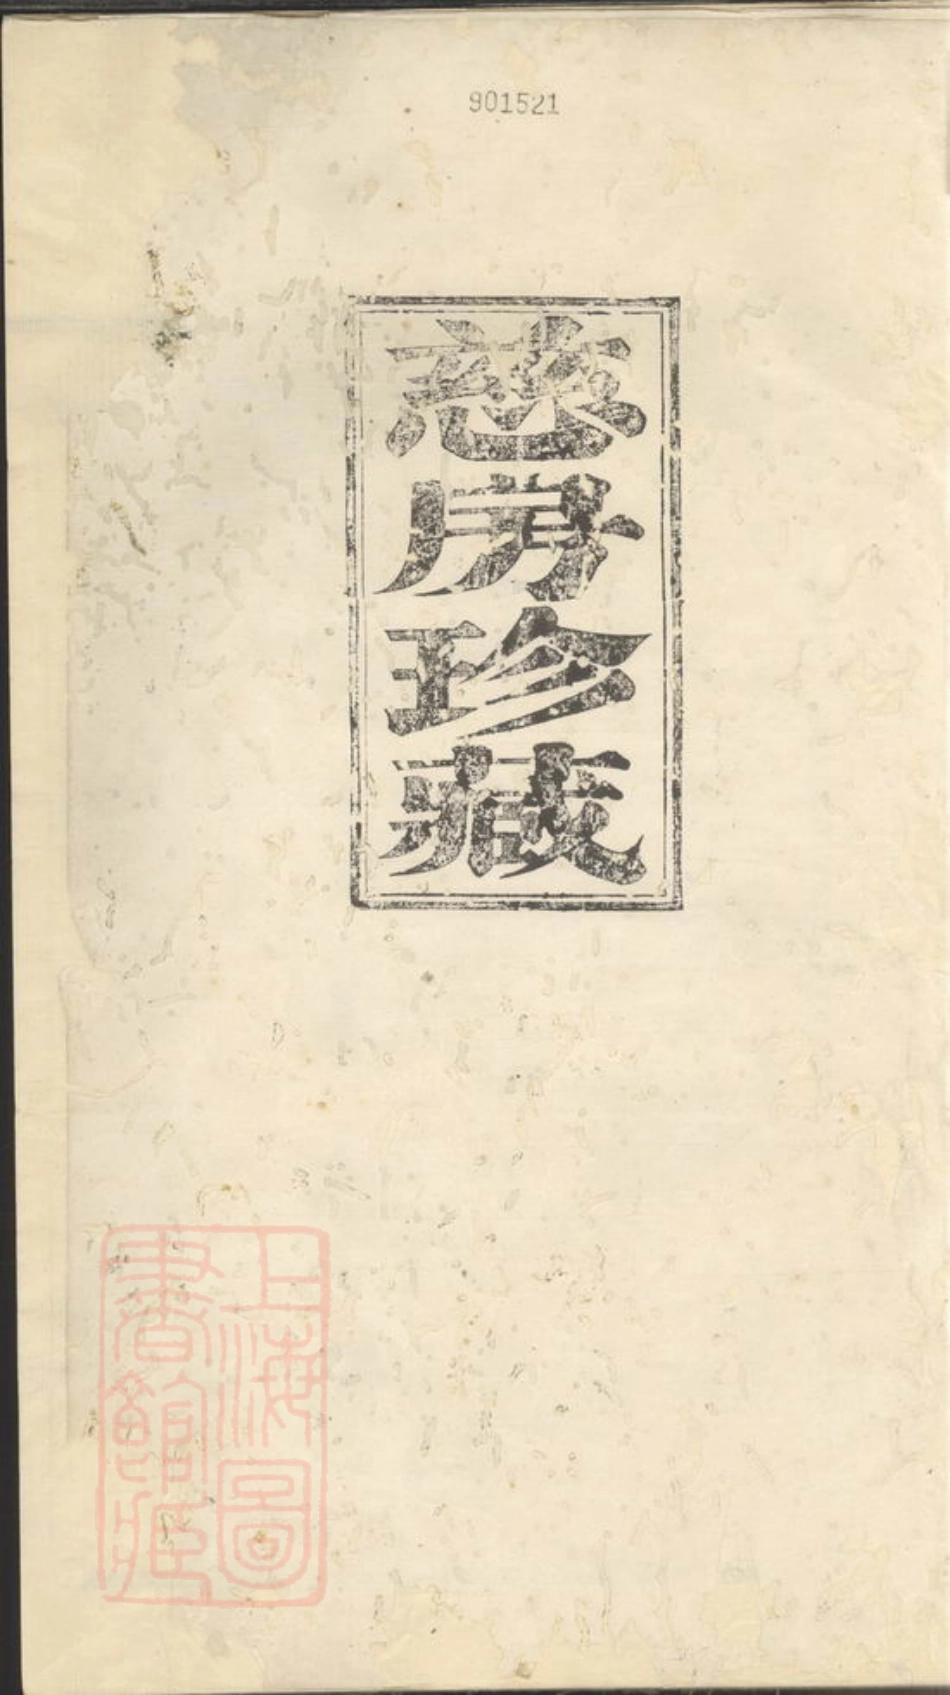 901521
房珍藏
上海圖
書館藏